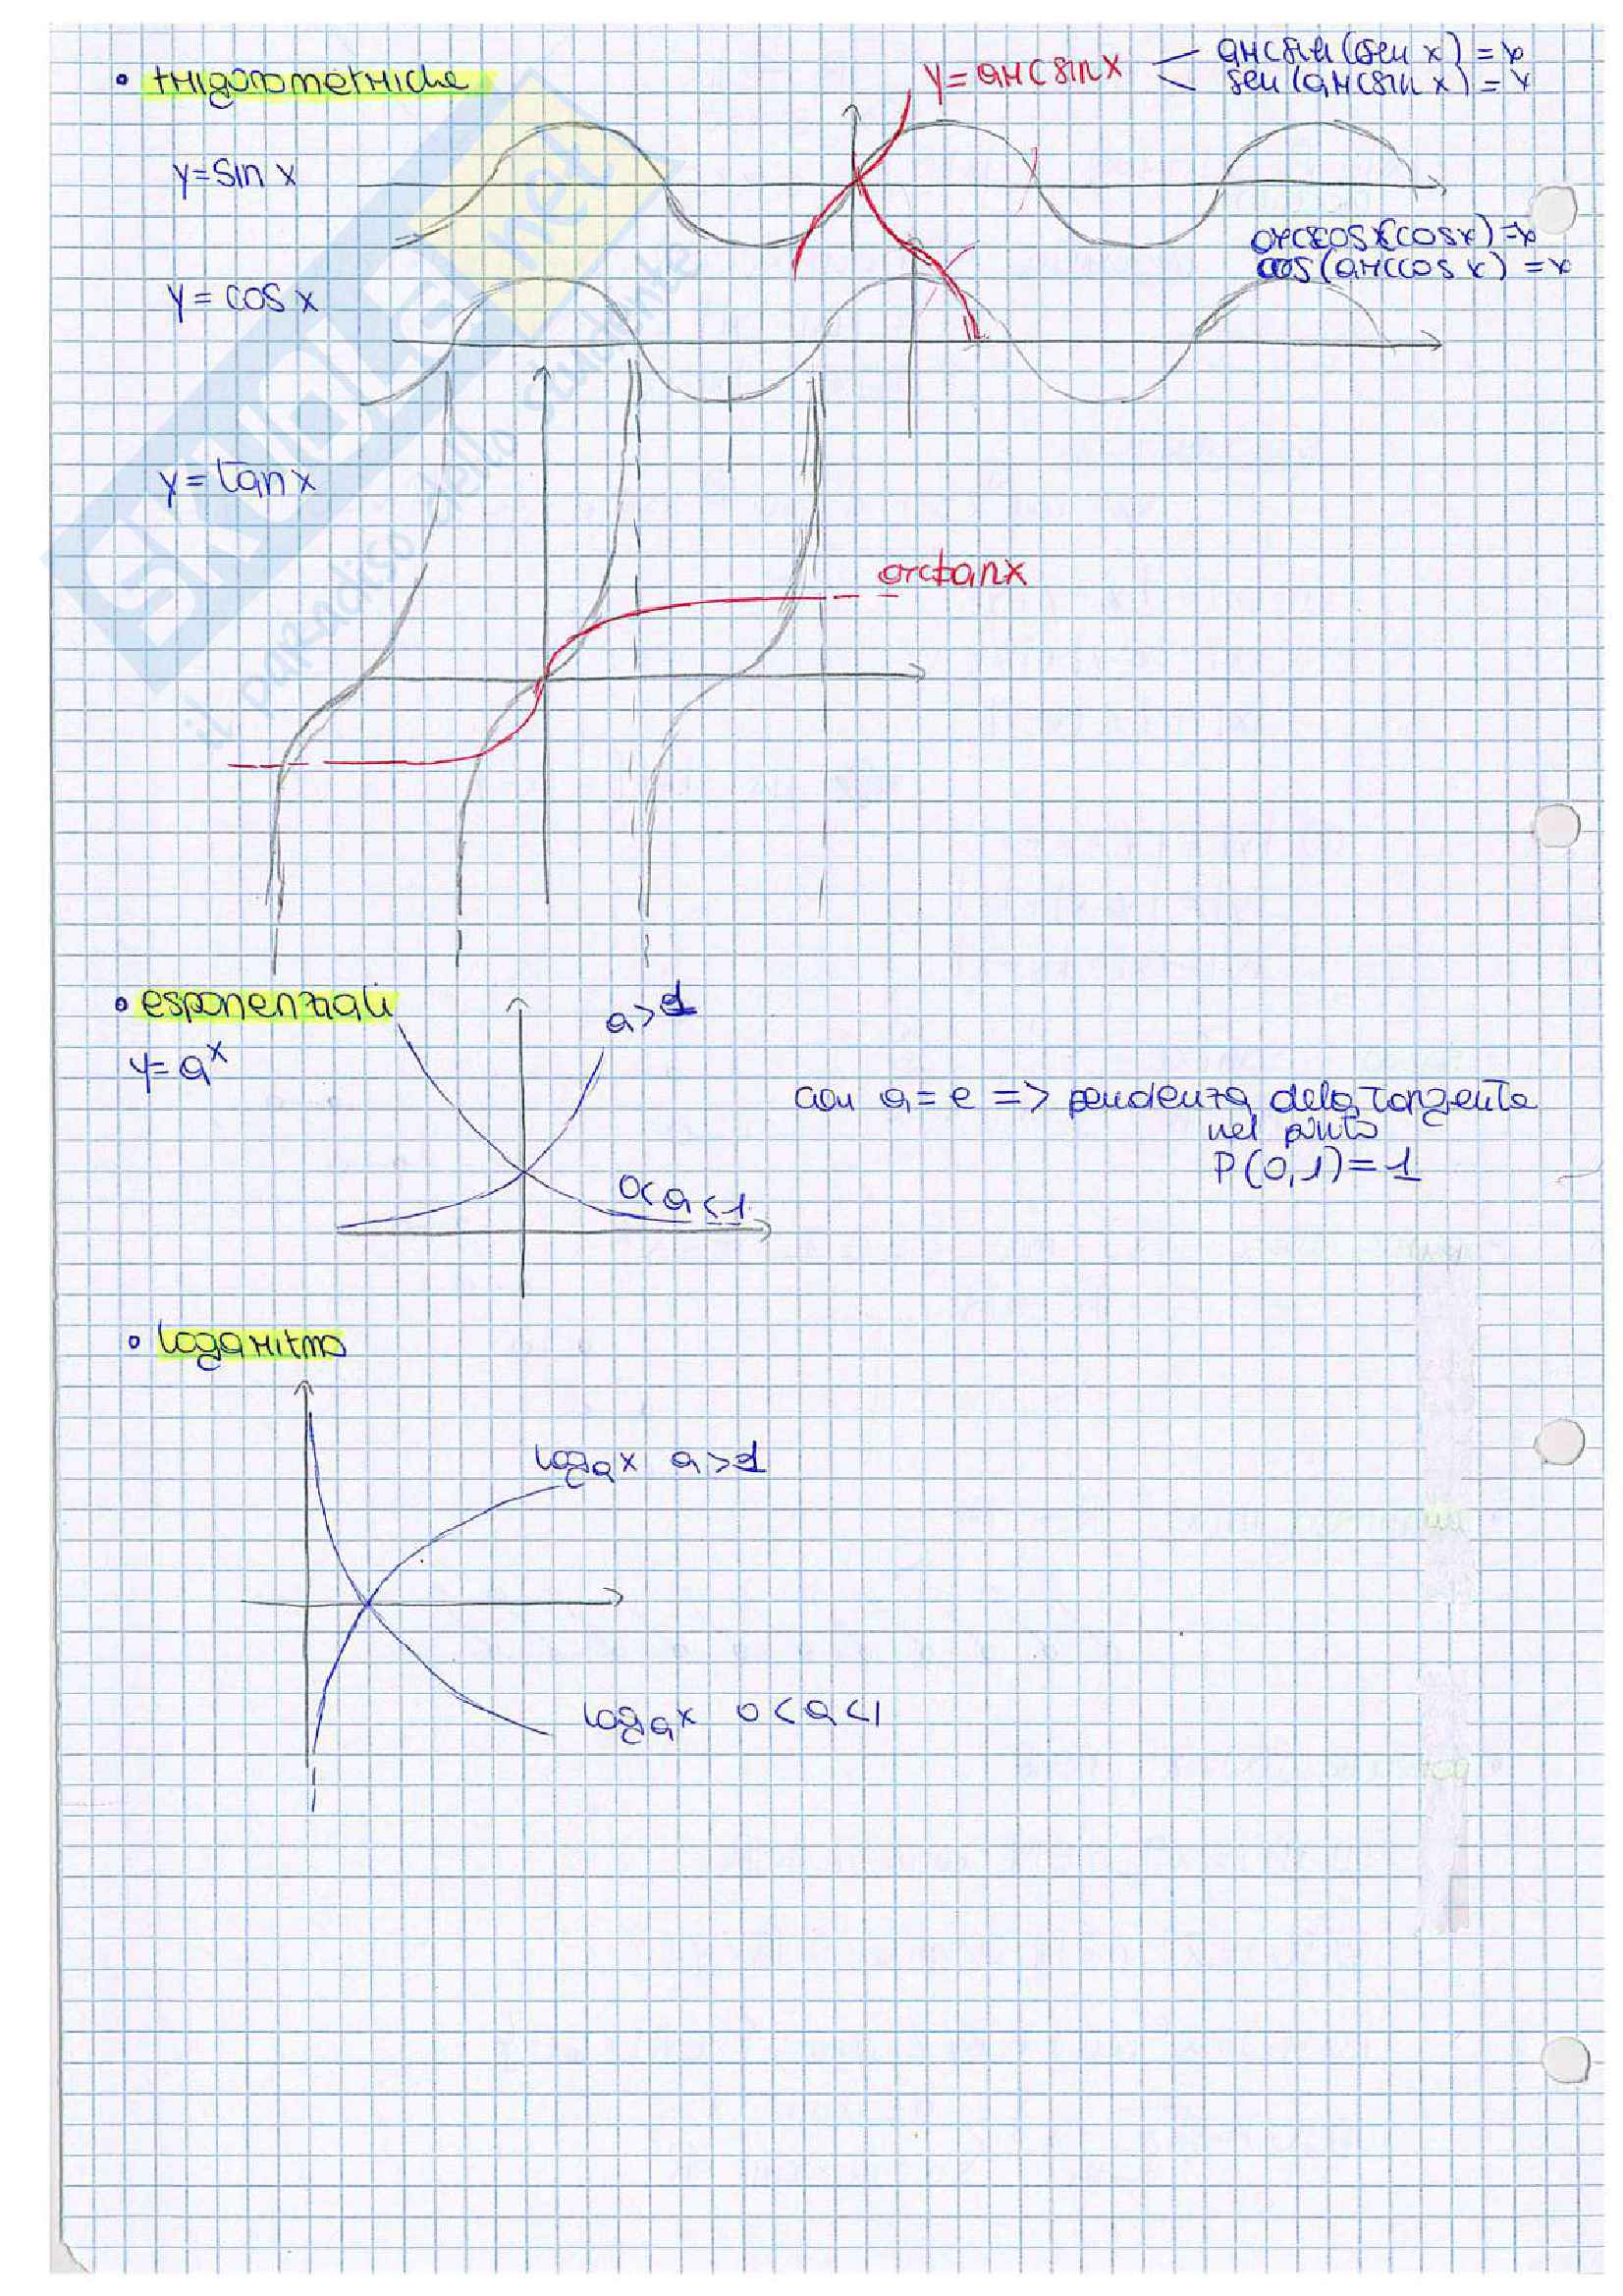 • trigonometriche
y = arcsin x
arcsin (sen x) = x
sen (arcsin x) = x
y = sin x
arccos x(cos x) = x
cos (arccos x) = x
y = cos x
y = tan x
arctan x
• esponenziali
y = a^x
a > 1
0 < a < 1
con a = e => pendenza dela tangente
nel punto
P(0,1) = 1
• logaritmo
log_a x a > 1
log_a x 0 < a < 1
SKUOLA.net
il paradiso dello studente